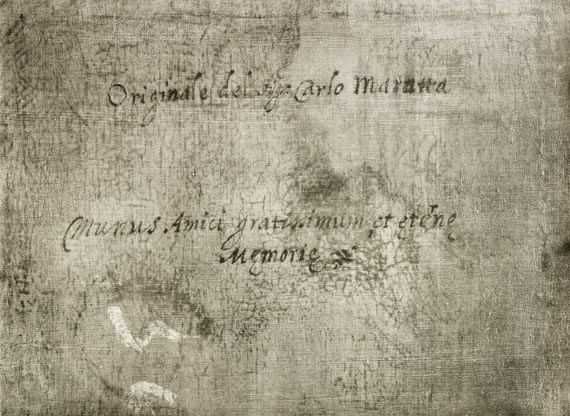 Originale del Sigr Carlo Maratta
Munus Amici gratissimum et etērnę
Memorię